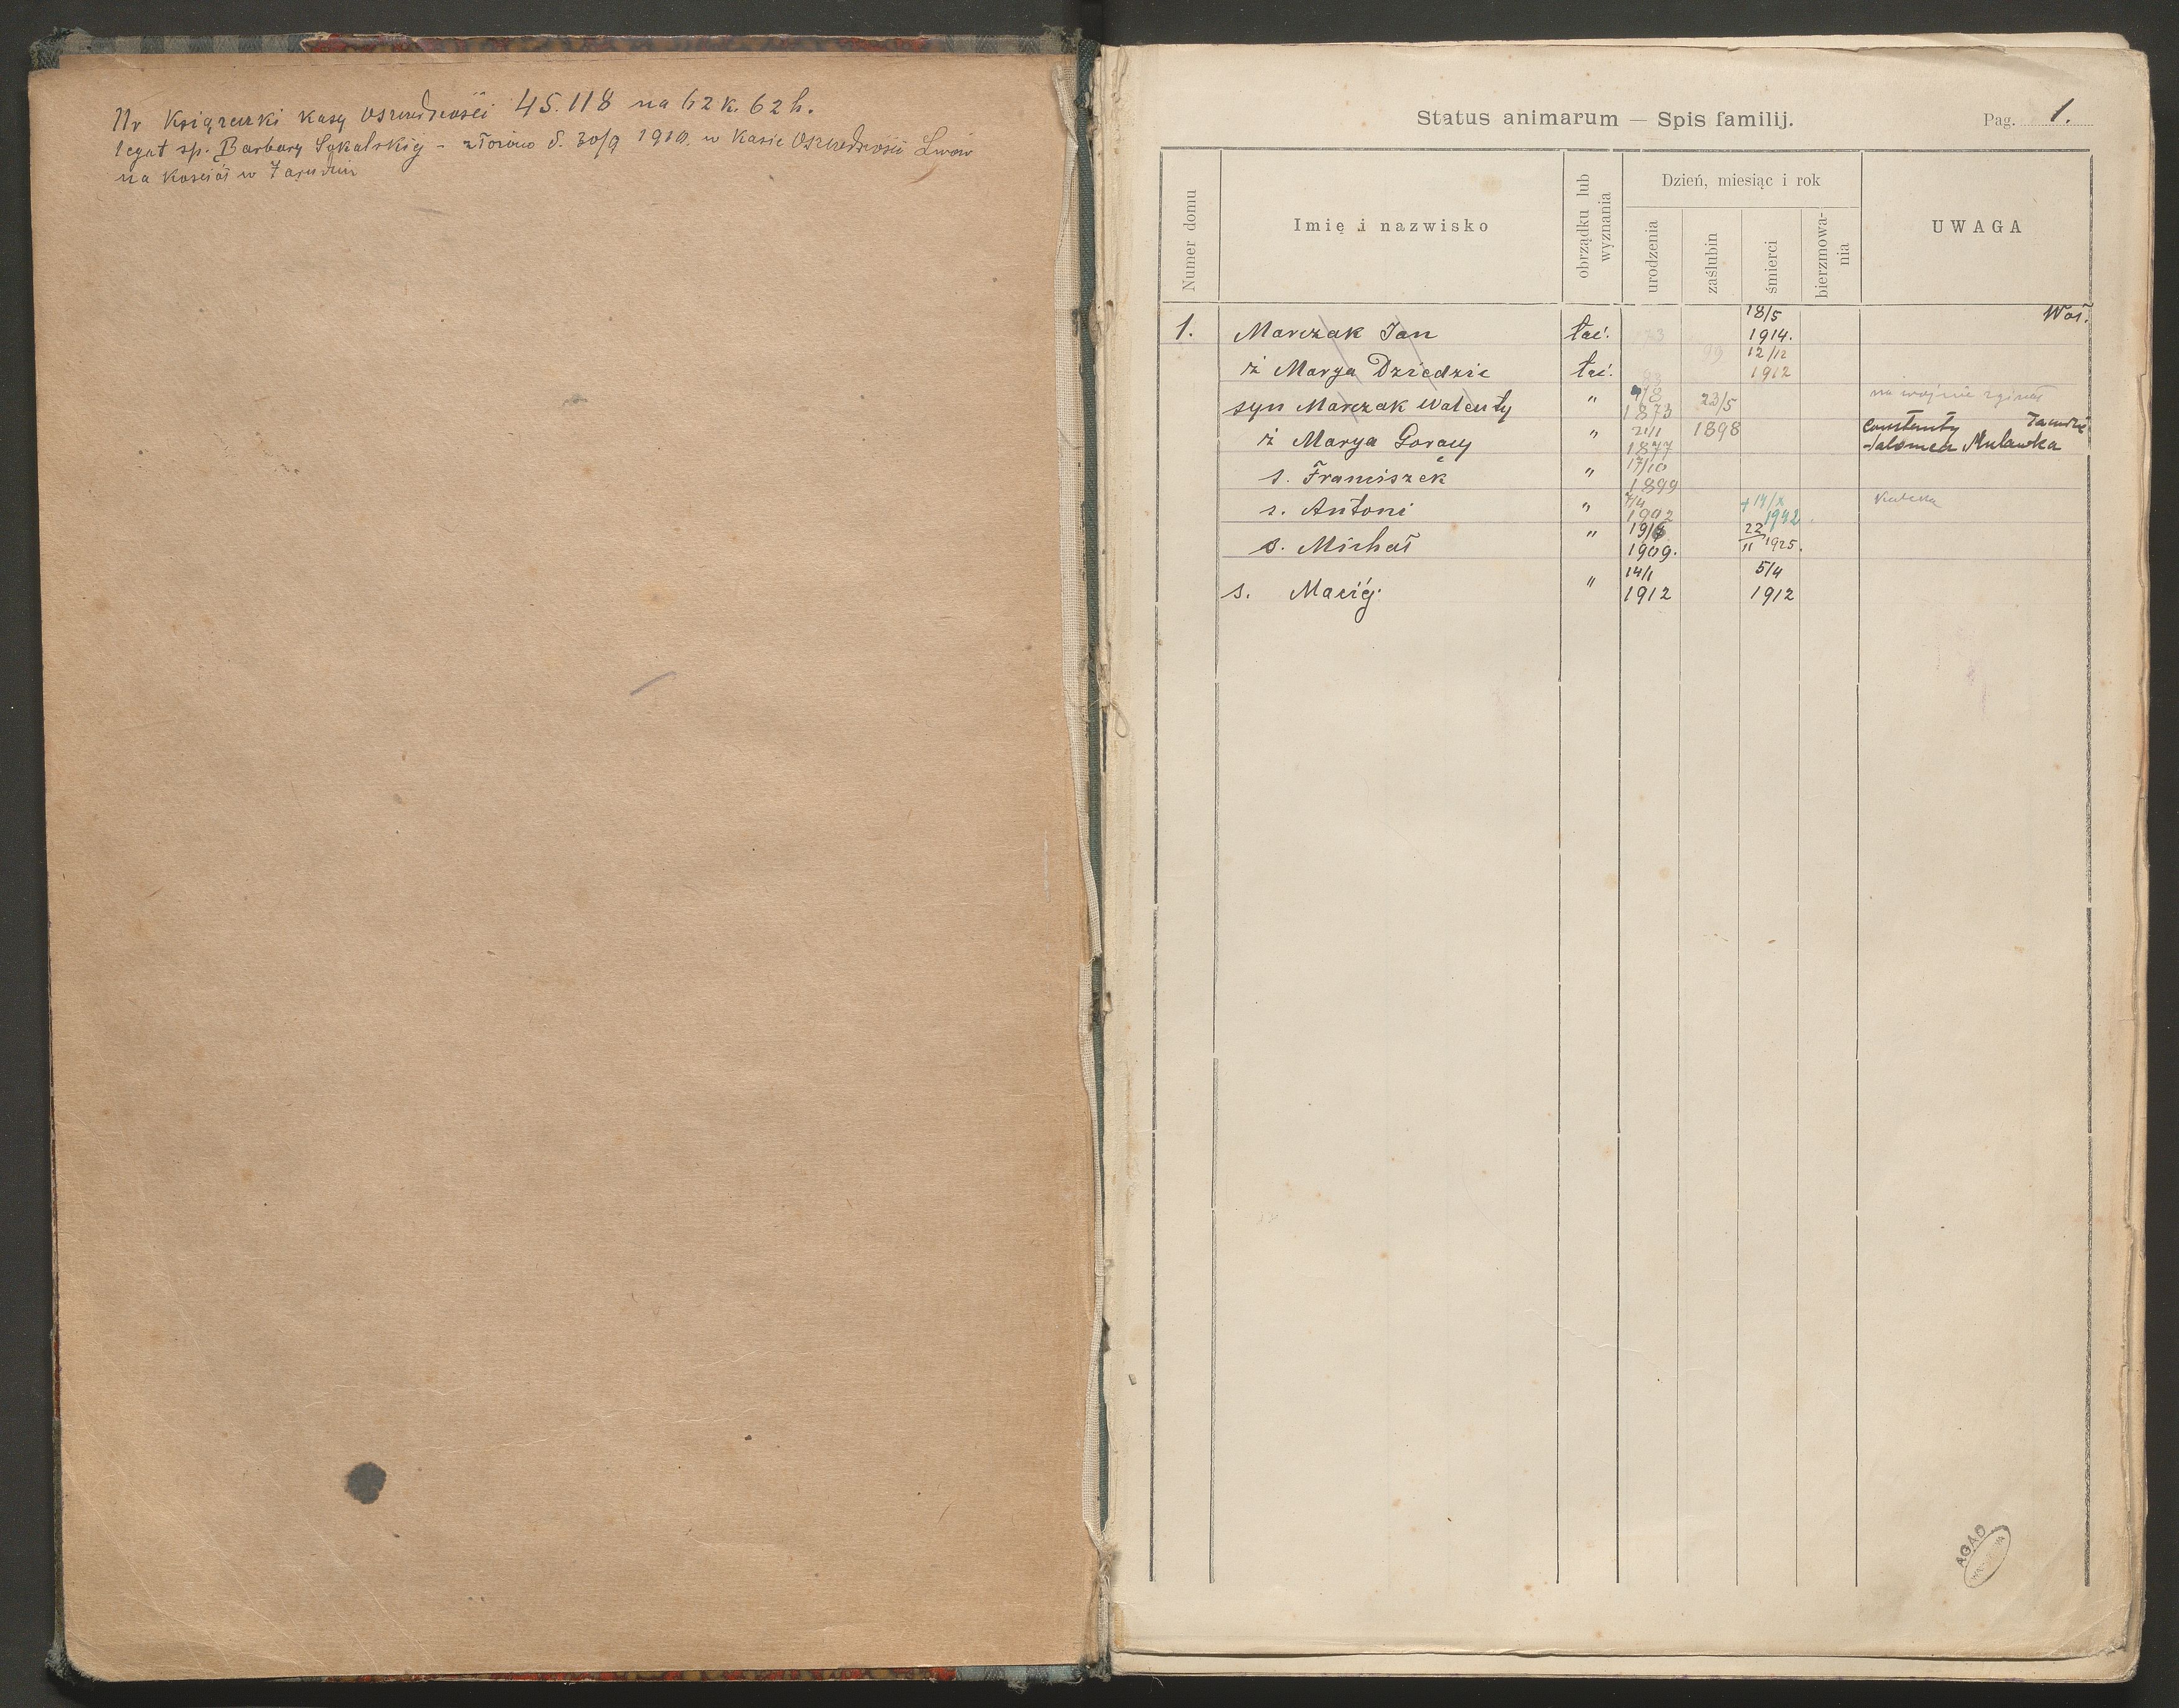 Nr Książeczki kasy Oszczędności 45.118 na 62 k. 62 h.
legat śp. Barbary Sokalskiej - złożono d. 30/9 1910. w Kasie Oszczędności Lwów
na Kościół w
Status animarum — Spis familij.
Pag. 1.
Numer domu
Imię i nazwisko
obrządku lub wyznania
Dzień, miesiąc i rok
urodzenia
zaślubin
śmierci
bierzmowania
UWAGA
1. Marczak Jan łać. 18/5 1914.
ż Marya Dziedzic łać. 12/12 1912
syn Marczak Walenty " 1873 23/5 na wojnie zginął
ż Marya Goracy " 21/1 1877 1898 Constanty Salomea Mulawka
s. Franciszek " 17/10 1899
s. Antoni " 7/4 1902 + 14/X 1942
s. Michał " 1909. 22/11 1925.
s. Maciej " 14/1 1912 5/4 1912
AGAD